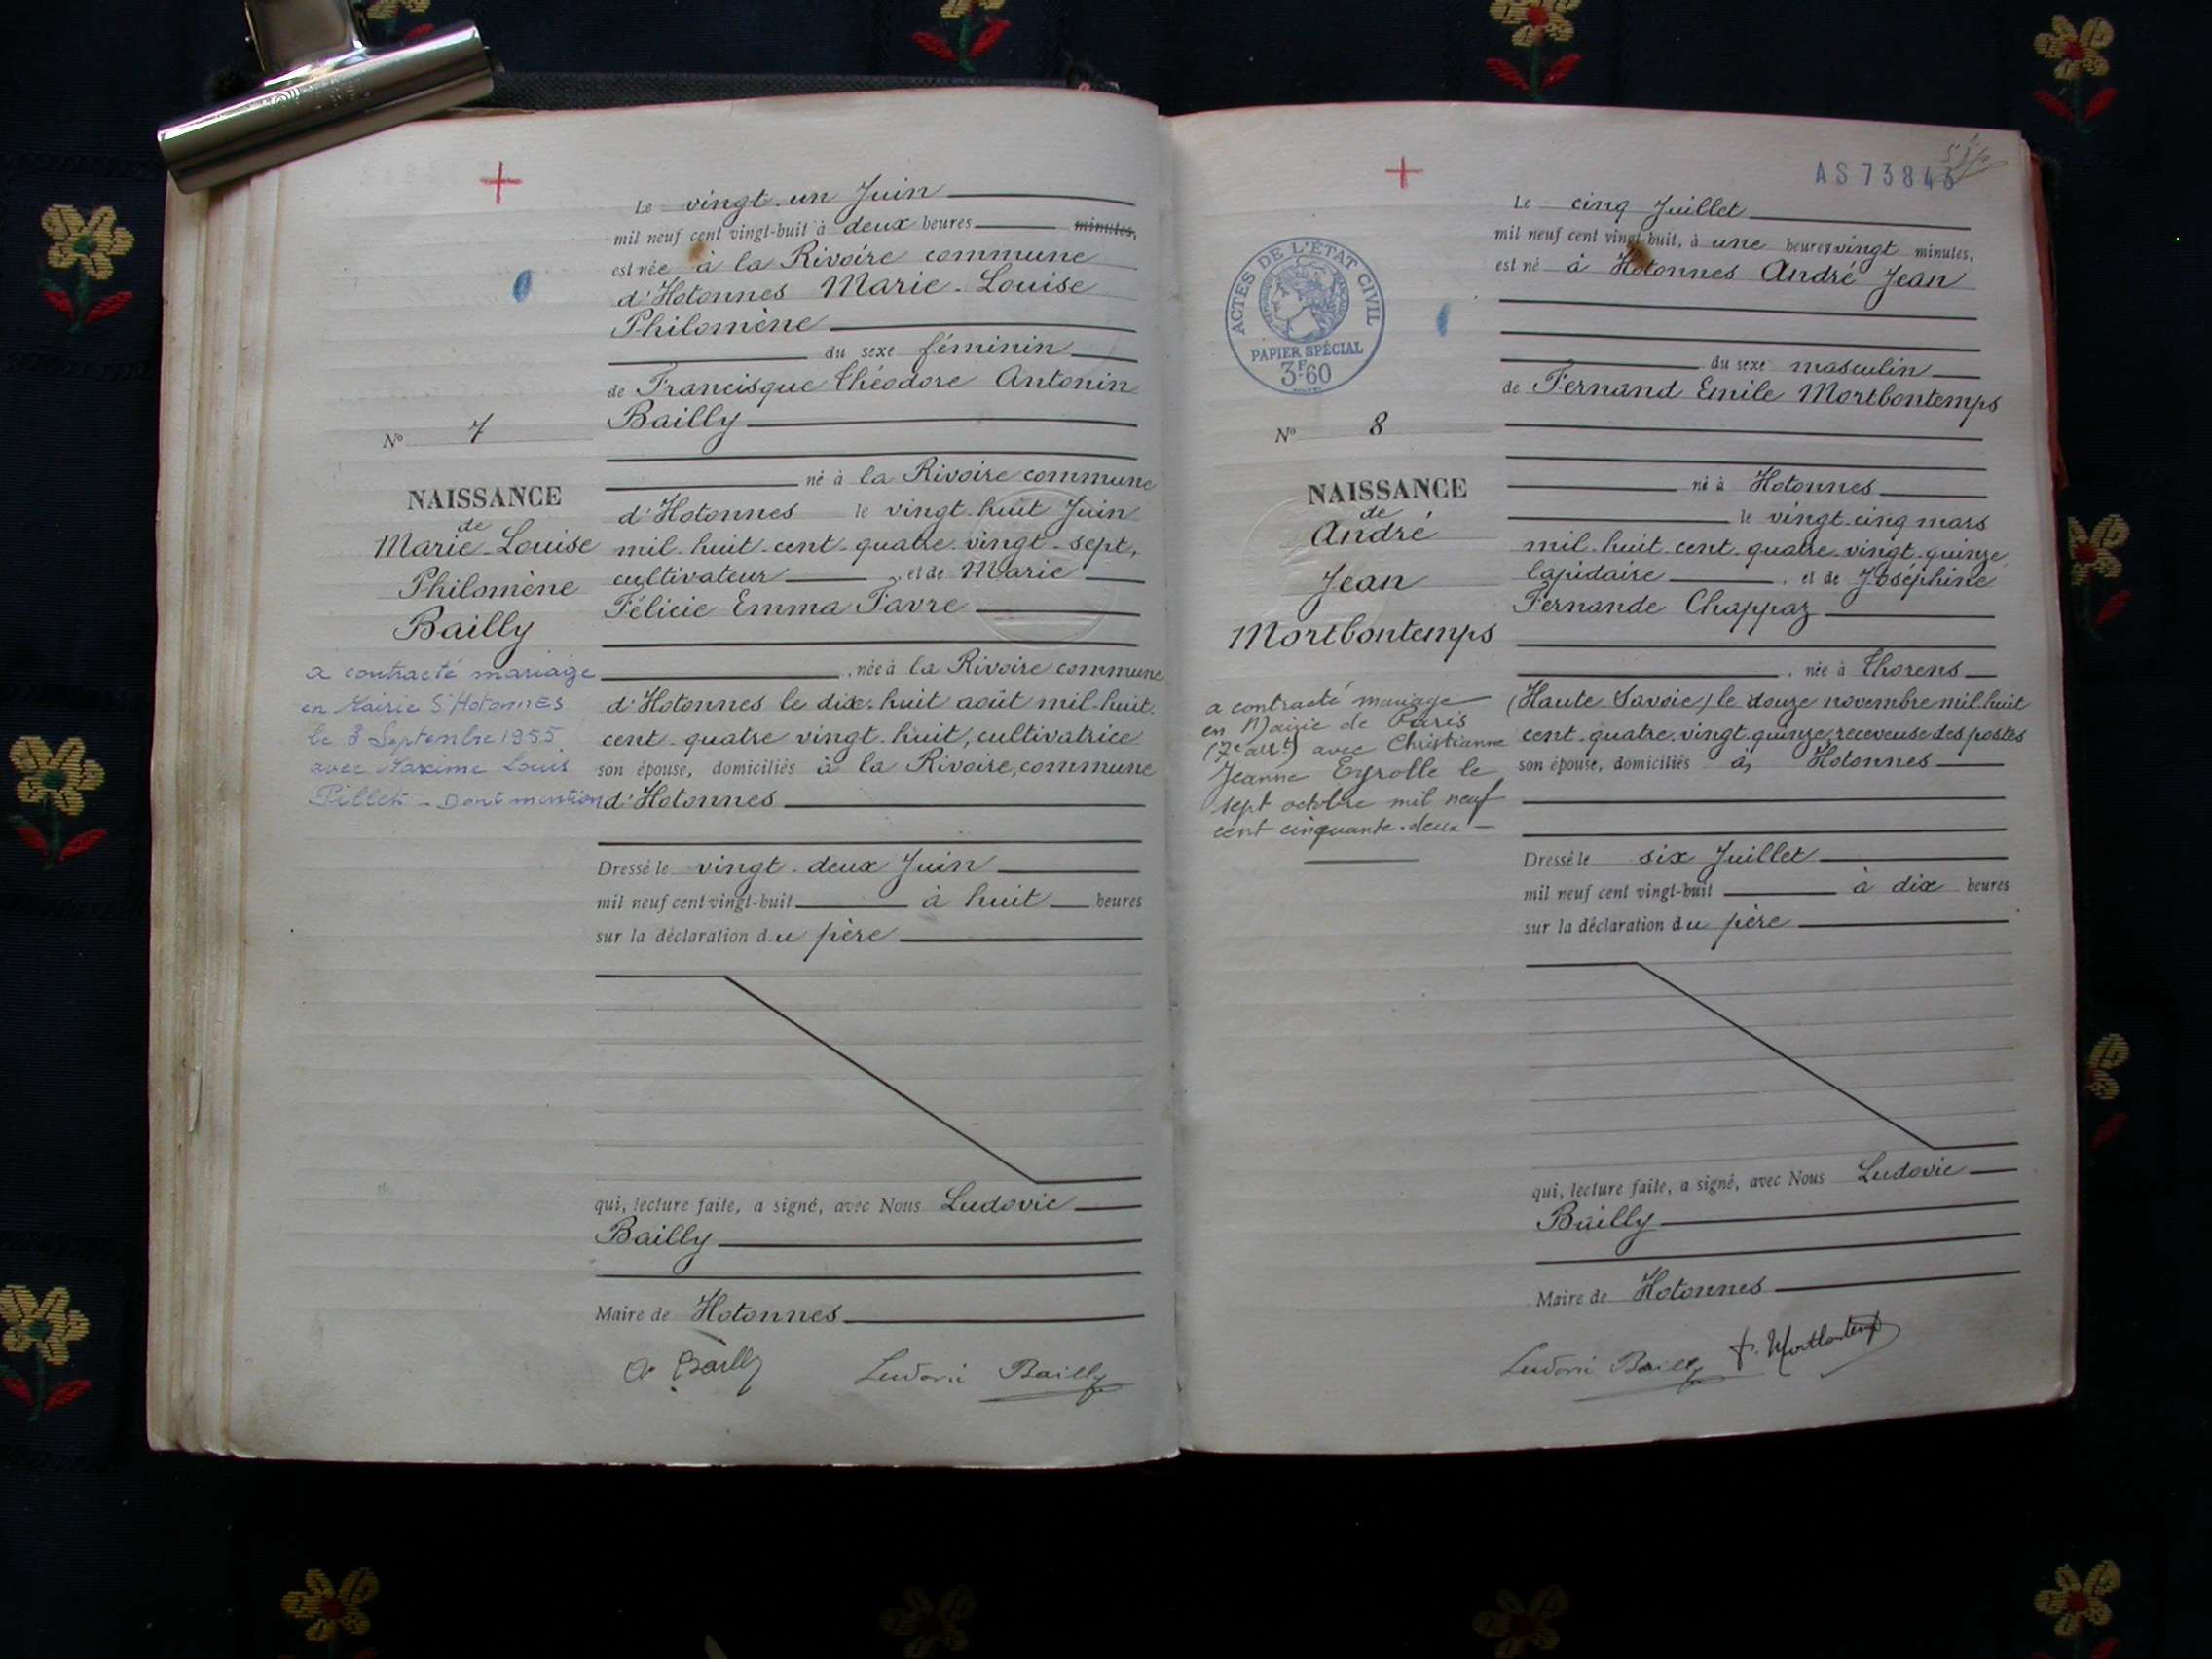 Le vingt-un Juin
mil neuf cent vingt-huit à deux heures minutes,
est née à la Rivoire commune
d'Hotonnes Marie-Louise
Philomène
du sexe féminin
de Francisque Théodore Antonin
Bailly
né à la Rivoire commune
d'Hotonnes le vingt-huit Juin
mil-huit-cent-quatre-vingt-sept,
cultivateur, et de Marie
Félicie Emma Favre
, née à la Rivoire commune
d'Hotonnes le dix-huit août mil-huit-
cent-quatre vingt-huit, cultivatrice
son épouse, domiciliés à la Rivoire, commune
d'Hotonnes
Dressé le vingt-deux Juin
mil neuf cent vingt-huit à huit heures
sur la déclaration du père
qui, lecture faite, a signé, avec Nous Ludovic
Bailly
Maire de Hotonnes
Bailly Ludovic Bailly
N° 7
NAISSANCE
de
Marie-Louise
Philomène
Bailly
a contracté mariage
en Mairie d'HotonnEs
le 3 Septembre 1955
avec Maxime Louis
Pillet - Dont mention
AS 73843
ACTES DE L'ÉTAT CIVIL
PAPIER SPÉCIAL
3F.60
Le cinq Juillet
mil neuf cent vingt-huit, à une heures vingt minutes,
est né à Hotonnes André Jean
du sexe masculin
de Fernand Emile Mortbontemps
né à Hotonnes
le vingt-cinq mars
mil-huit-cent-quatre-vingt-quinze
lapidaire, et de Joséphine
Fernande Chappaz
, née à Thorens
(Haute-Savoie) le douze novembre mil-huit
cent-quatre-vingt-quinze, receveuse des postes
son épouse, domiciliés à, Hotonnes
Dressé le six Juillet
mil neuf cent vingt-huit à dix heures
sur la déclaration du père
qui, lecture faite, a signé, avec Nous Ludovic
Bailly
Maire de Hotonnes
Ludovic Bailly F. Mortbontemps
N° 8
NAISSANCE
de
André
Jean
Mortbontemps
a contracté mariage
en Mairie de Paris
(7e arrt) avec Christianne
Jeanne Eyrolle le
sept octobre mil neuf
cent cinquante-deux -